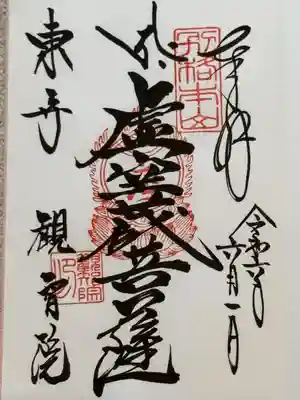 奉拝
令和六年
六月一日
別格本山
虚空蔵菩薩
東寺
観智院